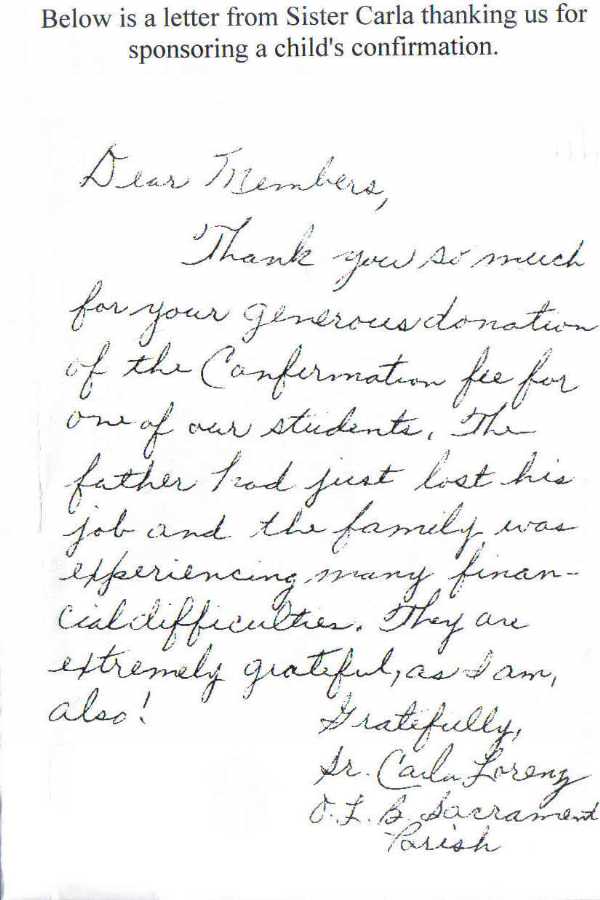 Below is a letter from Sister Carla thanking us for
sponsoring a child's confirmation.
Dear Members,
Thank you so much
for your generous donation
of the Confirmation fee for
one of our students. The
father had just lost his
job and the family was
experiencing many finan-
cial difficulties. They are
extremely grateful, as I am,
also!
Gratefully,
Sr. Carla Lorenz
O. L. B. Sacrament
Parish